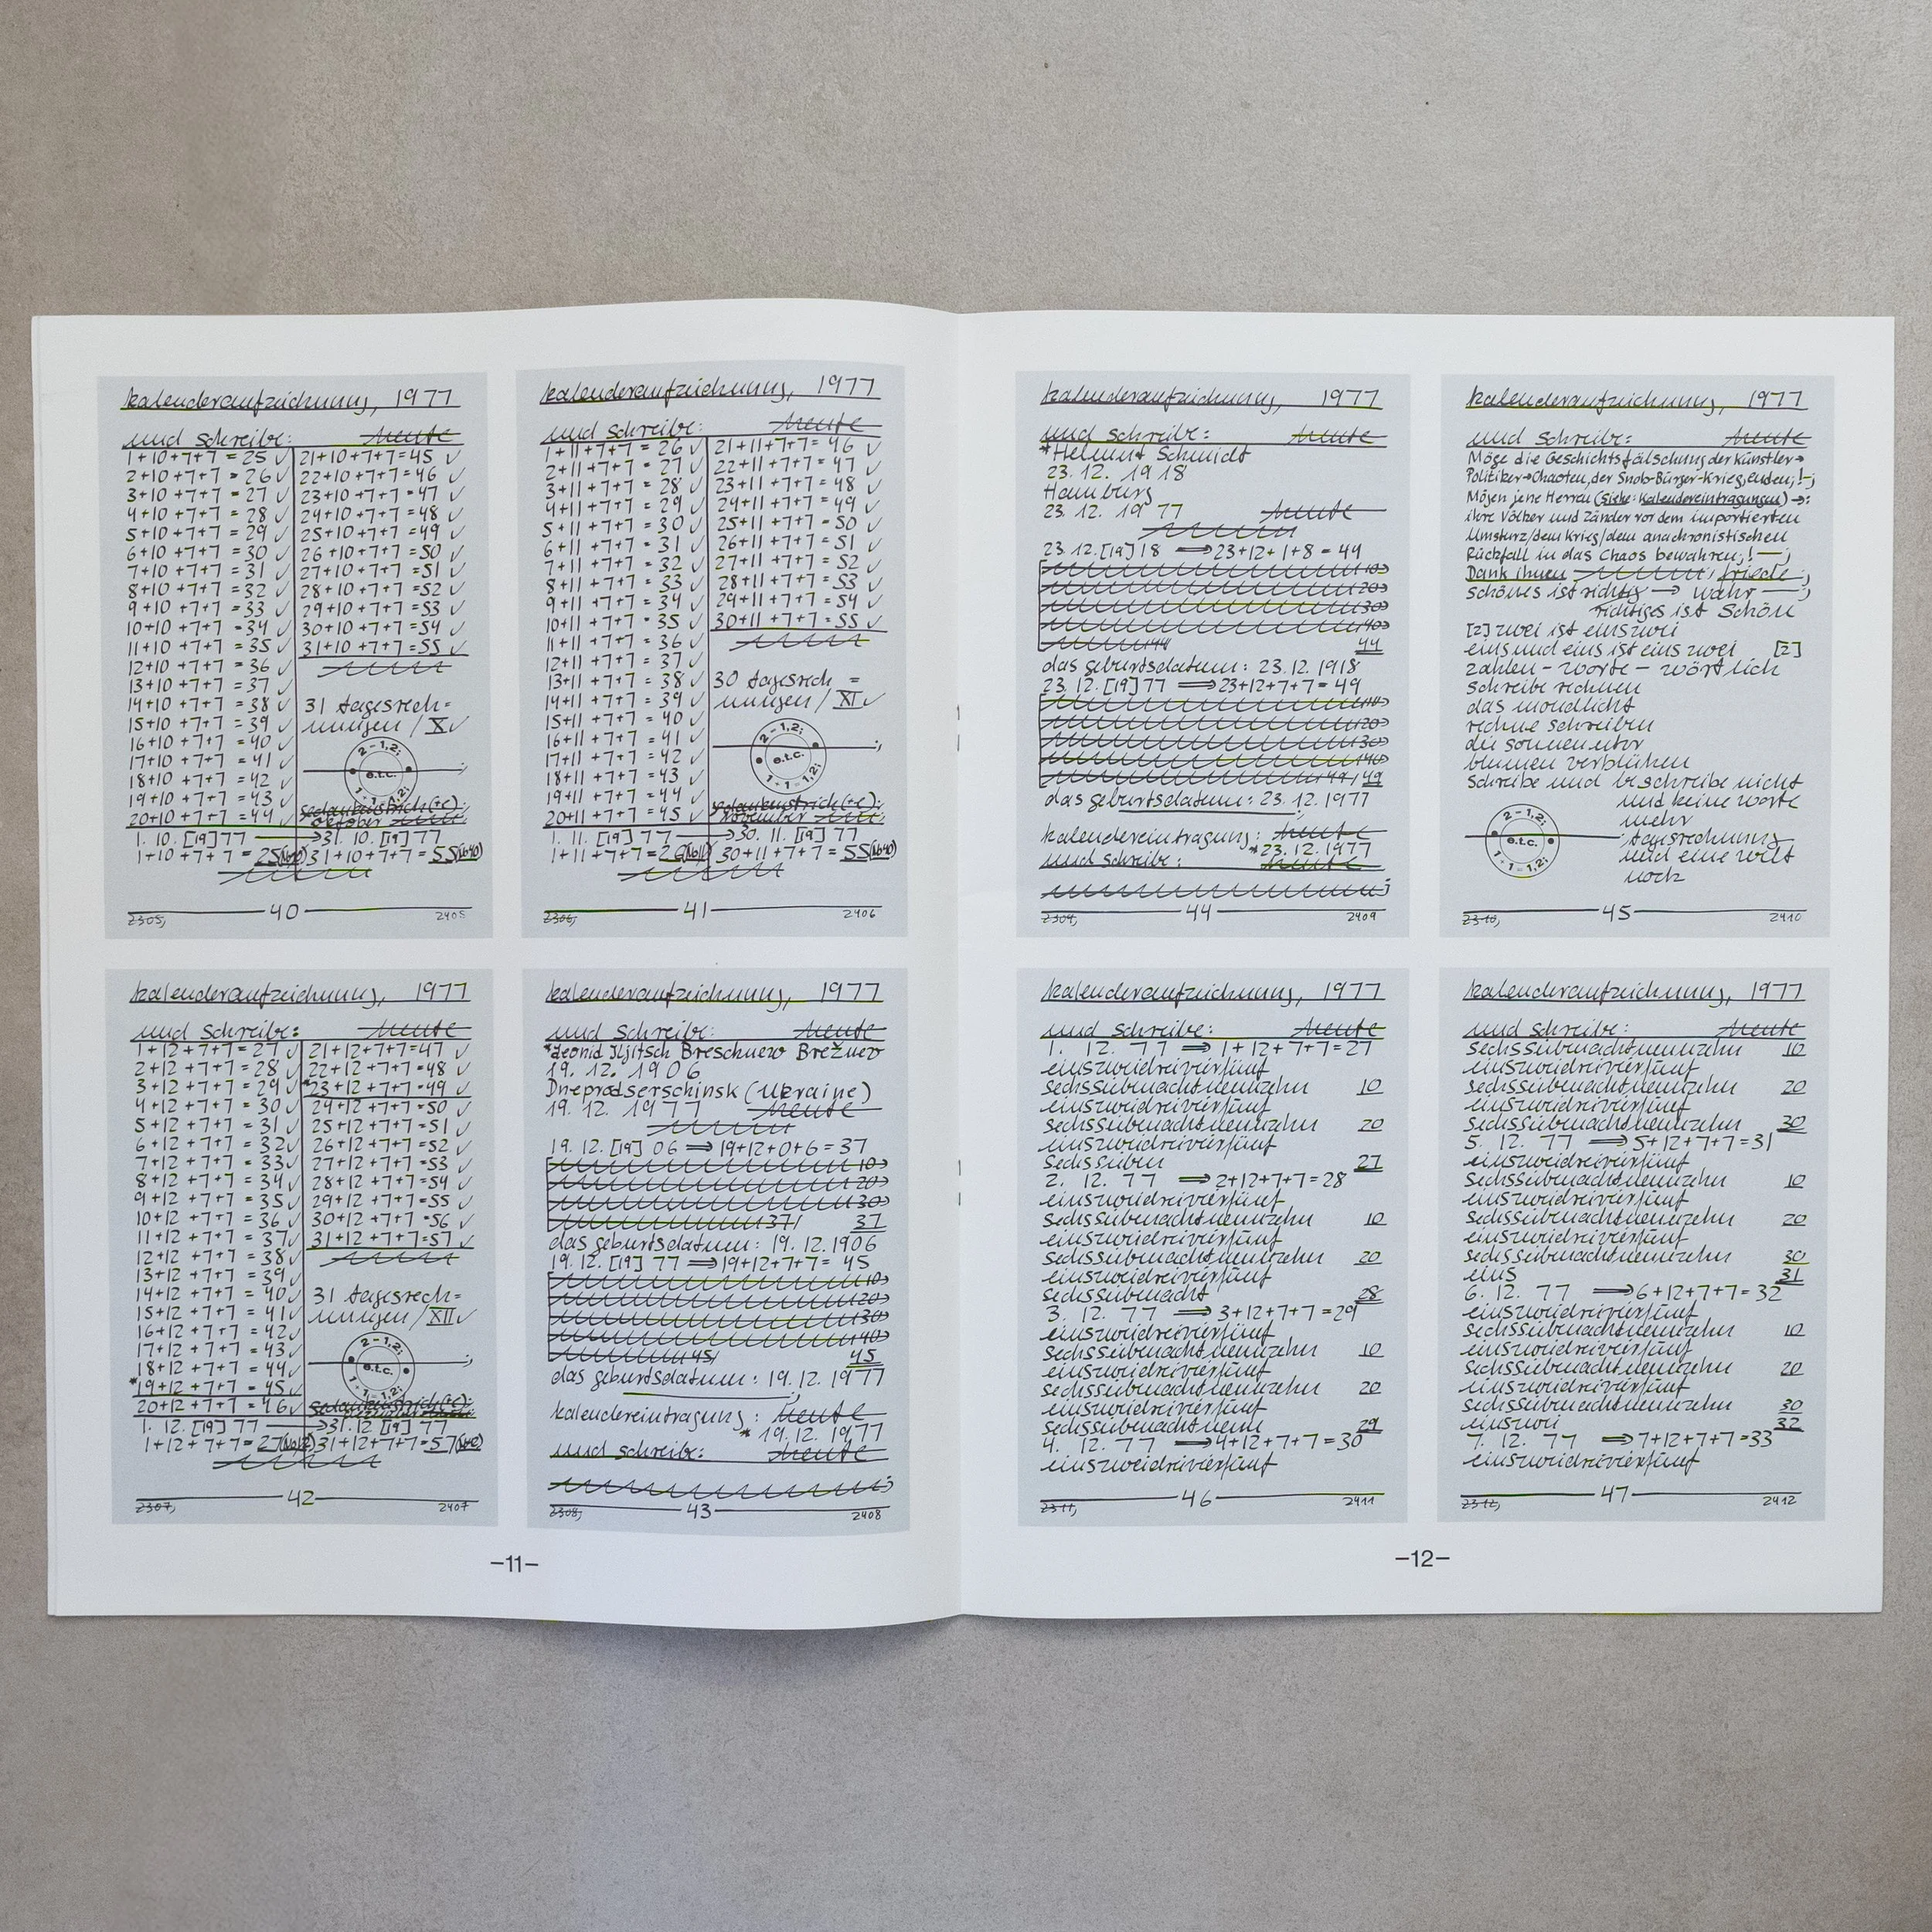 kalenderaufzeichnung, 1977
und schreibe: heute
1+10+7+7=25 ✓
2+10+7+7=26 ✓
3+10+7+7=27 ✓
4+10+7+7=28 ✓
5+10+7+7=29 ✓
6+10+7+7=30 ✓
7+10+7+7=31 ✓
8+10+7+7=32 ✓
9+10+7+7=33 ✓
10+10+7+7=34 ✓
11+10+7+7=35 ✓
12+10+7+7=36 ✓
13+10+7+7=37 ✓
14+10+7+7=38 ✓
15+10+7+7=39 ✓
16+10+7+7=40 ✓
17+10+7+7=41 ✓
18+10+7+7=42 ✓
19+10+7+7=43 ✓
20+10+7+7=44 ✓
21+10+7+7=45 ✓
22+10+7+7=46 ✓
23+10+7+7=47 ✓
24+10+7+7=48 ✓
25+10+7+7=49 ✓
26+10+7+7=50 ✓
27+10+7+7=51 ✓
28+10+7+7=52 ✓
29+10+7+7=53 ✓
30+10+7+7=54 ✓
31+10+7+7=55 ✓
31 tagesrech=
nungen / X ✓
2-1,2;
e.t.c.
1+1=1,2;
gedankenstrich(+c):
oktober heute:
1. 10. [19] 77 → 31. 10. [19] 77
1+10+7+7=25(No10) 31+10+7+7=55(No40)
2305, 40 2405
kalenderaufzeichnung, 1977
und schreibe: heute
1+11+7+7=26 ✓
2+11+7+7=27 ✓
3+11+7+7=28 ✓
4+11+7+7=29 ✓
5+11+7+7=30 ✓
6+11+7+7=31 ✓
7+11+7+7=32 ✓
8+11+7+7=33 ✓
9+11+7+7=34 ✓
10+11+7+7=35 ✓
11+11+7+7=36 ✓
12+11+7+7=37 ✓
13+11+7+7=38 ✓
14+11+7+7=39 ✓
15+11+7+7=40 ✓
16+11+7+7=41 ✓
17+11+7+7=42 ✓
18+11+7+7=43 ✓
19+11+7+7=44 ✓
20+11+7+7=45 ✓
21+11+7+7=46 ✓
22+11+7+7=47 ✓
23+11+7+7=48 ✓
24+11+7+7=49 ✓
25+11+7+7=50 ✓
26+11+7+7=51 ✓
27+11+7+7=52 ✓
28+11+7+7=53 ✓
29+11+7+7=54 ✓
30+11+7+7=55 ✓
30 tagesrech=
nungen / XI ✓
2-1,2;
e.t.c.
1+1=1,2;
gedankenstrich(+c):
november heute:
1. 11. [19] 77 → 30. 11. [19] 77
1+11+7+7=26(No11) 30+11+7+7=55(No40)
2306, 41 2406
kalenderaufzeichnung, 1977
und schreibe: heute
1+12+7+7=27 ✓
2+12+7+7=28 ✓
3+12+7+7=29 ✓
4+12+7+7=30 ✓
5+12+7+7=31 ✓
6+12+7+7=32 ✓
7+12+7+7=33 ✓
8+12+7+7=34 ✓
9+12+7+7=35 ✓
10+12+7+7=36 ✓
11+12+7+7=37 ✓
12+12+7+7=38 ✓
13+12+7+7=39 ✓
14+12+7+7=40 ✓
15+12+7+7=41 ✓
16+12+7+7=42 ✓
17+12+7+7=43 ✓
18+12+7+7=44 ✓
*19+12+7+7=45 ✓
20+12+7+7=46 ✓
21+12+7+7=47 ✓
22+12+7+7=48 ✓
*23+12+7+7=49 ✓
24+12+7+7=50 ✓
25+12+7+7=51 ✓
26+12+7+7=52 ✓
27+12+7+7=53 ✓
28+12+7+7=54 ✓
29+12+7+7=55 ✓
30+12+7+7=56 ✓
31+12+7+7=57 ✓
31 tagesrech=
nungen / XII ✓
2-1,2;
e.t.c.
1+1=1,2;
gedankenstrich(+c):
dezember heute:
1. 12. [19] 77 → 31. 12. [19] 77
1+12+7+7=27(No12) 31+12+7+7=57
2307, 42 2407
kalenderaufzeichnung, 1977
und schreibe: heute
*Leonid Iljitsch Breschnew Brežnev
19. 12. 1906
Dneprodserschinsk (Ukraine)
19. 12. 1977 heute
19. 12. [19] 06 ⟹ 19+12+0+6=37
10
20
30
37/ 37
das geburtsdatum: 19. 12. 1906
19. 12. [19] 77 ⟹ 19+12+7+7=45
10
20
30
40
45/ 45
das geburtsdatum: 19. 12. 1977
kalendereintragung: heute
* 19. 12. 1977
und schreibe: heute
2308, 43 2408
-11-
kalenderaufzeichnung, 1977
und schreibe: heute
*Helmut Schmidt
23. 12. 1918
Hamburg
23. 12. 1977 heute
23. 12. [19] 18 ⟹ 23+12+1+8=44
10
20
30
40
44 44
das geburtsdatum: 23. 12. 1918
23. 12. [19] 77 ⟹ 23+12+7+7=49
10
20
30
40
49/ 49
das geburtsdatum: 23. 12. 1977
kalendereintragung: heute
*23. 12. 1977
und schreibe: heute
2309, 44 2409
kalenderaufzeichnung, 1977
und schreibe: heute
Möge die Geschichtsfälschung der Künstler→
Politiker→Chaoten, der Snob-Bürger-Krieg, enden;!—;
Mögen jene Herren (siehe: Kalendereintragungen) →:
ihre Völker und Länder vor dem importierten
Umsturz/dem Krieg/dem anachronistischen
Rückfall in das Chaos bewahren;!—;
Dank ihnen friede;
schönes ist richtig → wahr —;
richtiges ist schön
[2] zwei ist einszwei
eins und eins ist eins zwei [2]
zahlen - worte - wörtlich
schreibe rechnen
das mondlicht
rechne schreiben
die sonnenuhr
blumen verblühen
schreibe und beschreibe nicht
und keine worte
mehr
tagesrechnung
und eine welt
noch
2-1,2;
e.t.c.
1+1=1,2;
2310, 45 2410
kalenderaufzeichnung, 1977
und schreibe: heute
1. 12. 77 ⟹ 1+12+7+7=27
einszweidreivierfünf
sechssiebenachtneunzehn 10
einszweidreivierfünf
sechssiebenachtneunzehn 20
einszweidreivierfünf
sechssieben 27
2. 12. 77 ⟹ 2+12+7+7=28
einszweidreivierfünf
sechssiebenachtneunzehn 10
einszweidreivierfünf
sechssiebenachtneunzehn 20
einszweidreivierfünf
sechssiebenacht 28
3. 12. 77 ⟹ 3+12+7+7=29
einszweidreivierfünf
sechssiebenachtneunzehn 10
einszweidreivierfünf
sechssiebenachtneunzehn 20
einszweidreivierfünf
sechssiebenachtneun 29
4. 12. 77 ⟹ 4+12+7+7=30
einszweidreivierfünf
2311, 46 2411
kalenderaufzeichnung, 1977
und schreibe: heute
sechssiebenachtneunzehn 10
einszweidreivierfünf
sechssiebenachtneunzehn 20
einszweidreivierfünf
sechssiebenachtneunzehn 30
5. 12. 77 ⟹ 5+12+7+7=31
einszweidreivierfünf
sechssiebenachtneunzehn 10
einszweidreivierfünf
sechssiebenachtneunzehn 20
einszweidreivierfünf
sechssiebenachtneunzehn 30
eins 31
6. 12. 77 ⟹ 6+12+7+7=32
einszweidreivierfünf
sechssiebenachtneunzehn 10
einszweidreivierfünf
sechssiebenachtneunzehn 20
einszweidreivierfünf
sechssiebenachtneunzehn 30
einszwei 32
7. 12. 77 ⟹ 7+12+7+7=33
einszweidreivierfünf
2312, 47 2412
-12-